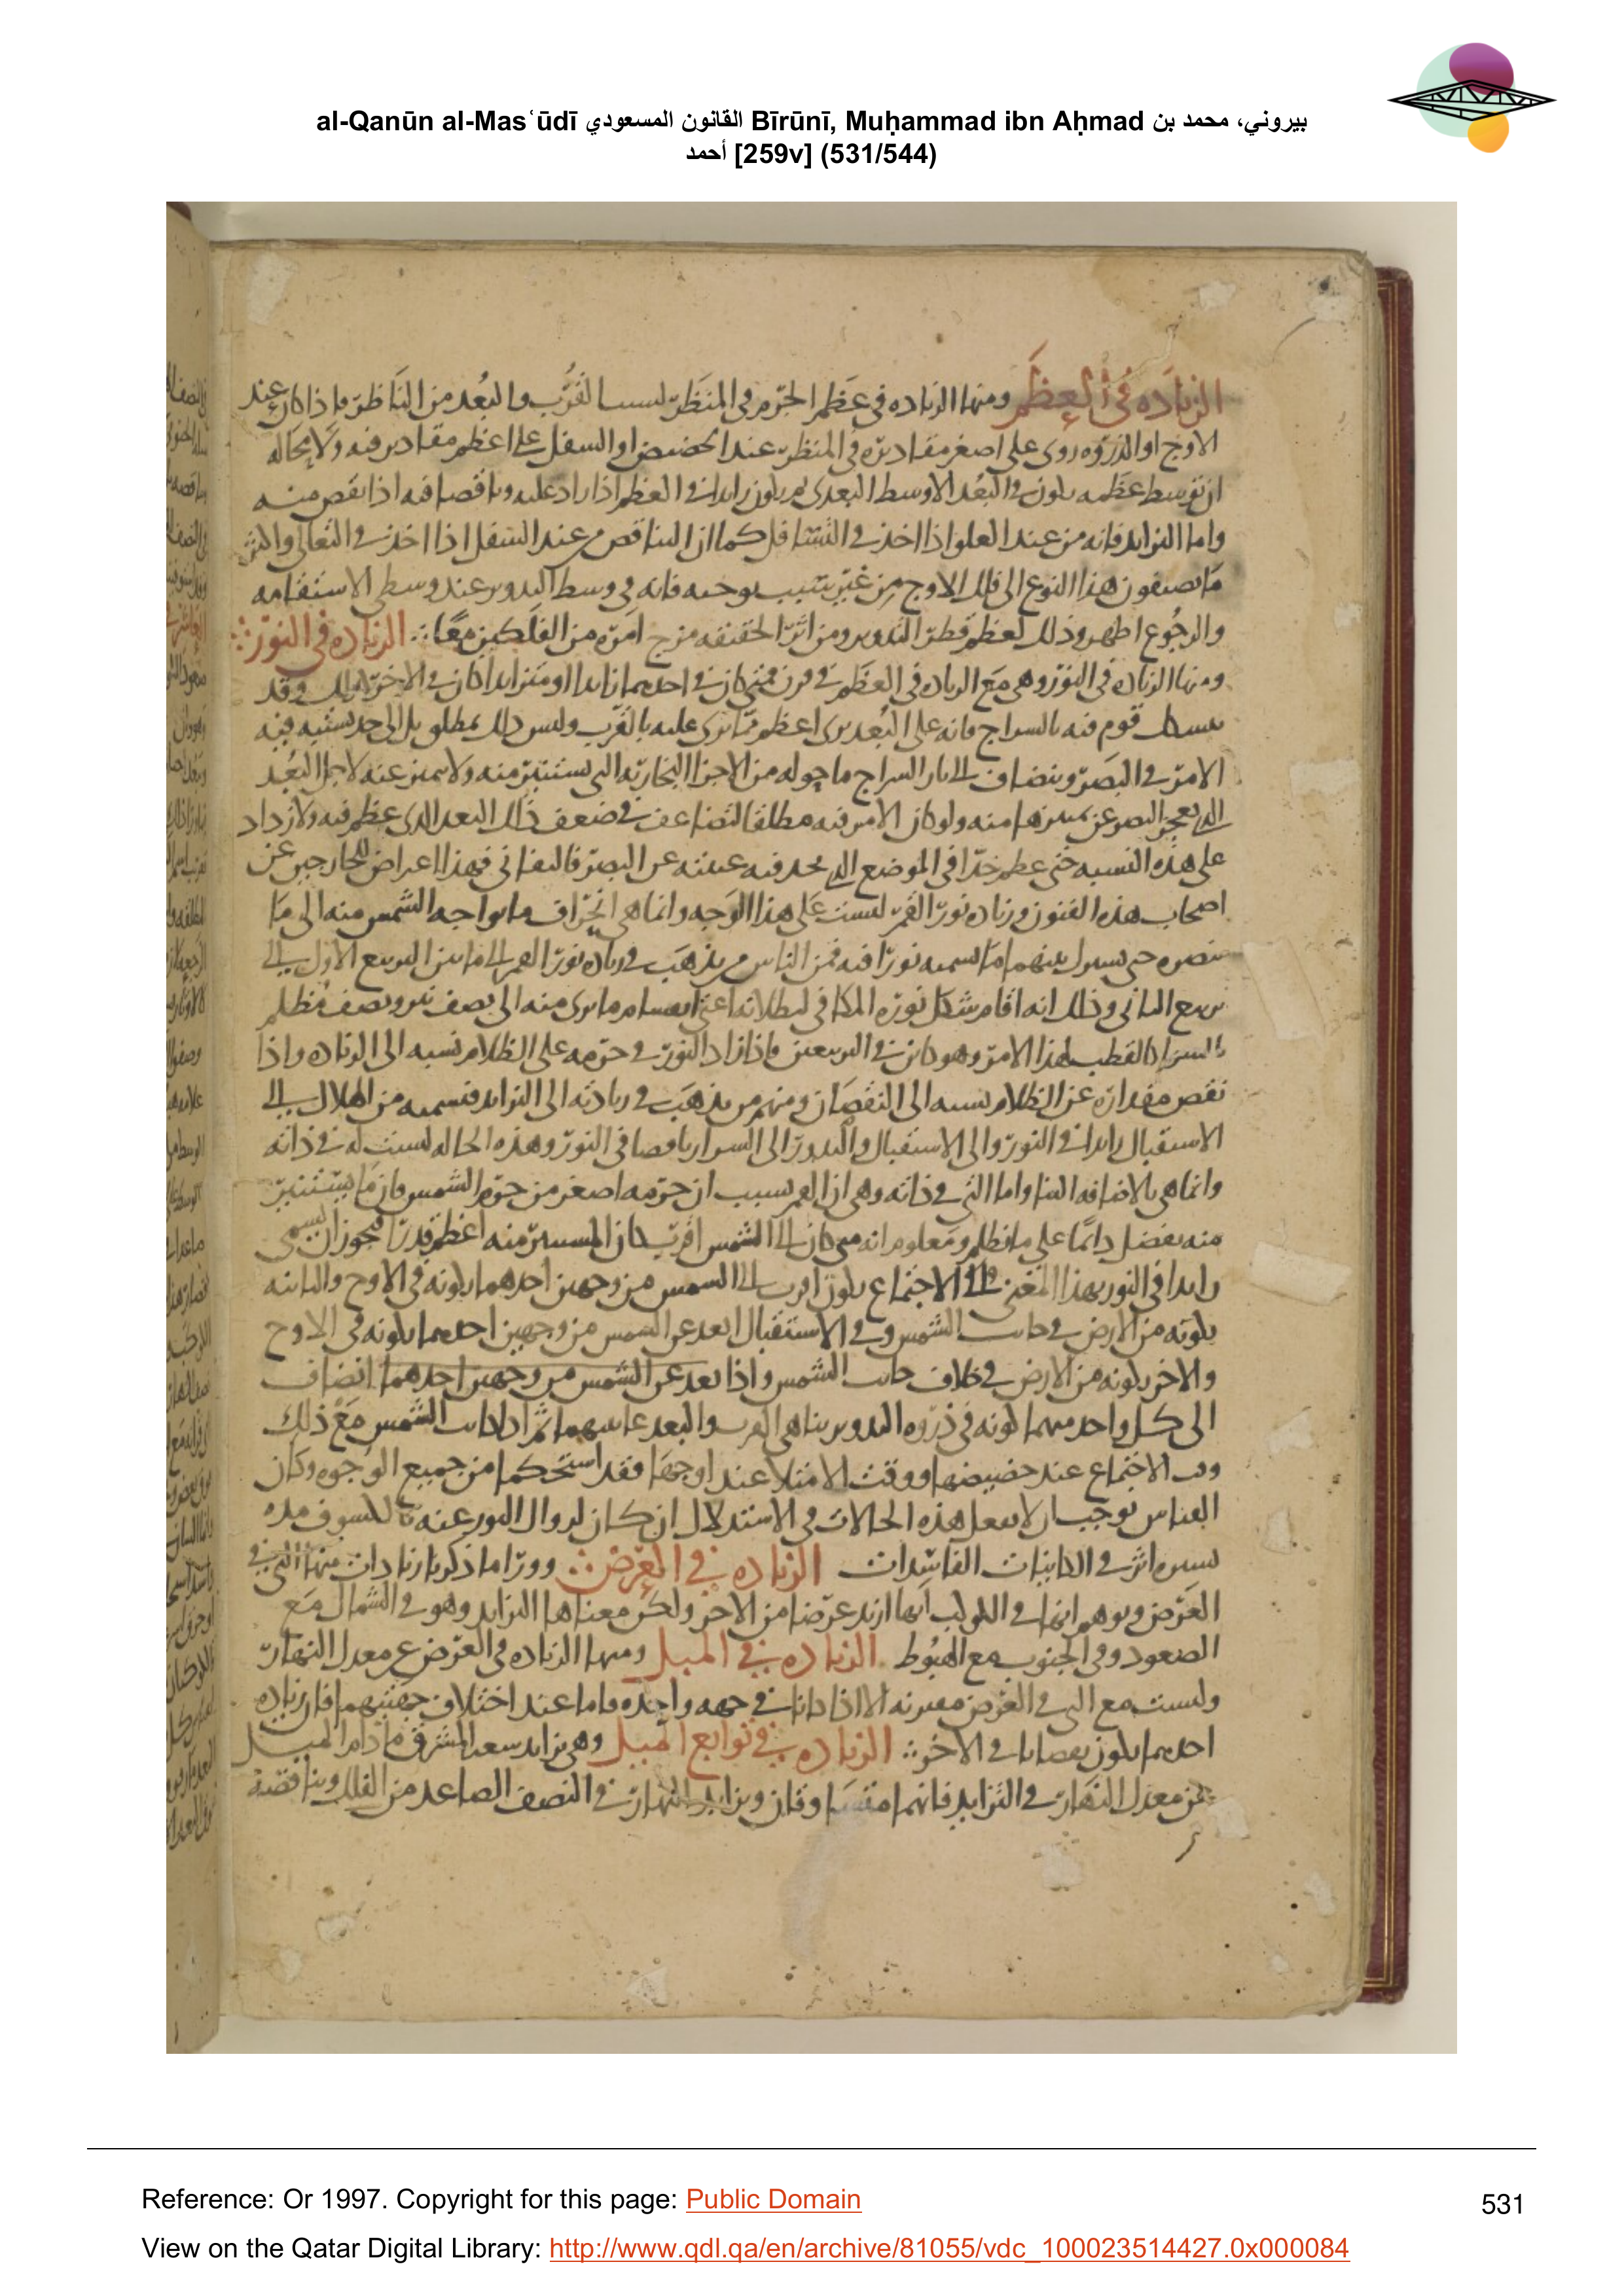 al-Qanūn al-Masʿūdī القانون المسعودي Bīrūnī, Muḥammad ibn Aḥmad بيروني، محمد بن
أحمد [259v] (531/544)
الزياده في العظم ومنها الزياده في عظم الجرم في المنظر لسبب القرب والبعد من الناظر فاذا كان عند
الاوج او الذروه روى على اصغر مقاديره في المنظر عند الحضيض او السفل على اعظم مقاديره فيه ولا محاله
ان توسط عظمه يكون في البعد الاوسط البعدى ثم يكون زايدا في العظم اذا زاد عليه وناقصا فيه اذا نقص منه
واما التزايد فانه من عند العلو اذا اخذ في التسافل كما ان التناقص من عند السفل اذا اخذ في التعالى واكثر
ما يصفون هذا النوع الى فلك الاوج من غير سبب يوجبه فانه في وسط التدوير عند وسطى الاستقامه
والرجوع اظهر وذلك لعظم قطر التدوير ومن اثر الحقيقه مزج امره من الفلكين معا الزياده في النور
ومنها الزياده في النور وهى مع الزياده في العظم في قرن فمتى كان في احدهما زايدا او متزايدا كان في الاخر كذلك وقد
قوم فيه بالسراج فانه على البعد يرى اعظم مما يرى عليه بالقرب وليس ذلك بمطلق بل الى حد يشتبه فيه
الامر في البصر وينضاف الى نار السراج ما حوله من الاجزا البخاريه التى تستنير منه ولا تميز عنه لاجل البعد
الذى يعجز البصر عن تمييزها منه ولو كان الامر فيه مطلقا لتضاعف في ضعف ذلك البعد الذى عظم فيه ولازداد
على هذه النسبه حتى عظم جدا في الموضع الذى فيه عن البصر فهذا اعراض الخارجين عن
اصحاب هذه الفنون وزياده نور القمر ليست على هذا الوجه وانما هى انحراف ما يواجه الشمس منه الى ما
بينهما ما نسميه نورا فيه فمن الناس من يذهب في زياده نور القمر الى ما بين التربيع الاول الى
التربيع الثانى وذلك انه اقام شكل نوره المكافى لبطلانه اعنى انقسام ما يرى منه الى نصف نير ونصف مظلم
كالقطب لهذا الامر وهو كائن في التربيعين فاذا زاد النور في جرمه على الظلام نسبه الى الزياده واذا
نقص مقداره عن الظلام نسبه الى النقصان ومنهم من يذهب في زيادته الى التزايد فنسميه من الهلال الى
الاستقبال زايدا في النور والى الاستقبال والبدور الى السرار ناقصا في النور وهذه الحاله ليست له في ذاته
وانما هى بالاضافه الينا واما التى في ذاته وهى ان القمر بسبب ان جرمه اصغر من جرم الشمس فان ما يستنير
منه يفضل دائما على ما يظلم ومعلوم انه متى كان الى الشمس اقرب كان المستنير منه اعظم قدرا فيجوز ان يسمى
زايدا في النور بهذا المعنى ففى الاجتماع يكون اقرب الى الشمس من وجهين احدهما بكونه في الاوج والثانيه
بكونه من الارض في جانب الشمس وفى الاستقبال ابعد عن الشمس من وجهين احدهما بكونه في الاوج
والاخر بكونه من الارض في خلاف جانب الشمس واذا بعد عن الشمس من وجهين احدهما انضاف
الى كل واحد منهما كونه في ذروه التدوير تناهى القرب والبعد ثم اذا كانت الشمس مع ذلك
وقت الاجتماع عند حضيضها ووقت الامتلا عند اوجها فقد استحكما من جميع الوجوه وكان
القياس يوجب ان لا هذه الحالات في الاستدلال ان كان لزوال النور عنه بالكسوف مده
يسيره اثر في الكاينات الفاسدات الزياده في العرض وورا ما ذكرنا زيادات منها التى في
العرض ويوهم انها في الكواكب انها ازيد عرضا من الاخر ولكن معناها التزايد وهو في الشمال مع
الصعود وفى الجنوب مع الهبوط الزياده في الميل ومنها الزياده في العرض عن معدل النهار
وليست مع التى في العرض مقترنه الا اذا كانا في جهه واحده فاما عند اختلاف جهتيهما فان زياده
احدهما يكون نقصانا في الاخر الزياده في توابع الميل وهى تزايد سعه المشرق ما دام الميل
عن معدل النهار في التزايد فانهما متساوقان وتزايد النهار في النصف الصاعد من الفلك وتناقصه
Reference: Or 1997. Copyright for this page: Public Domain
531
View on the Qatar Digital Library: http://www.qdl.qa/en/archive/81055/vdc_100023514427.0x000084